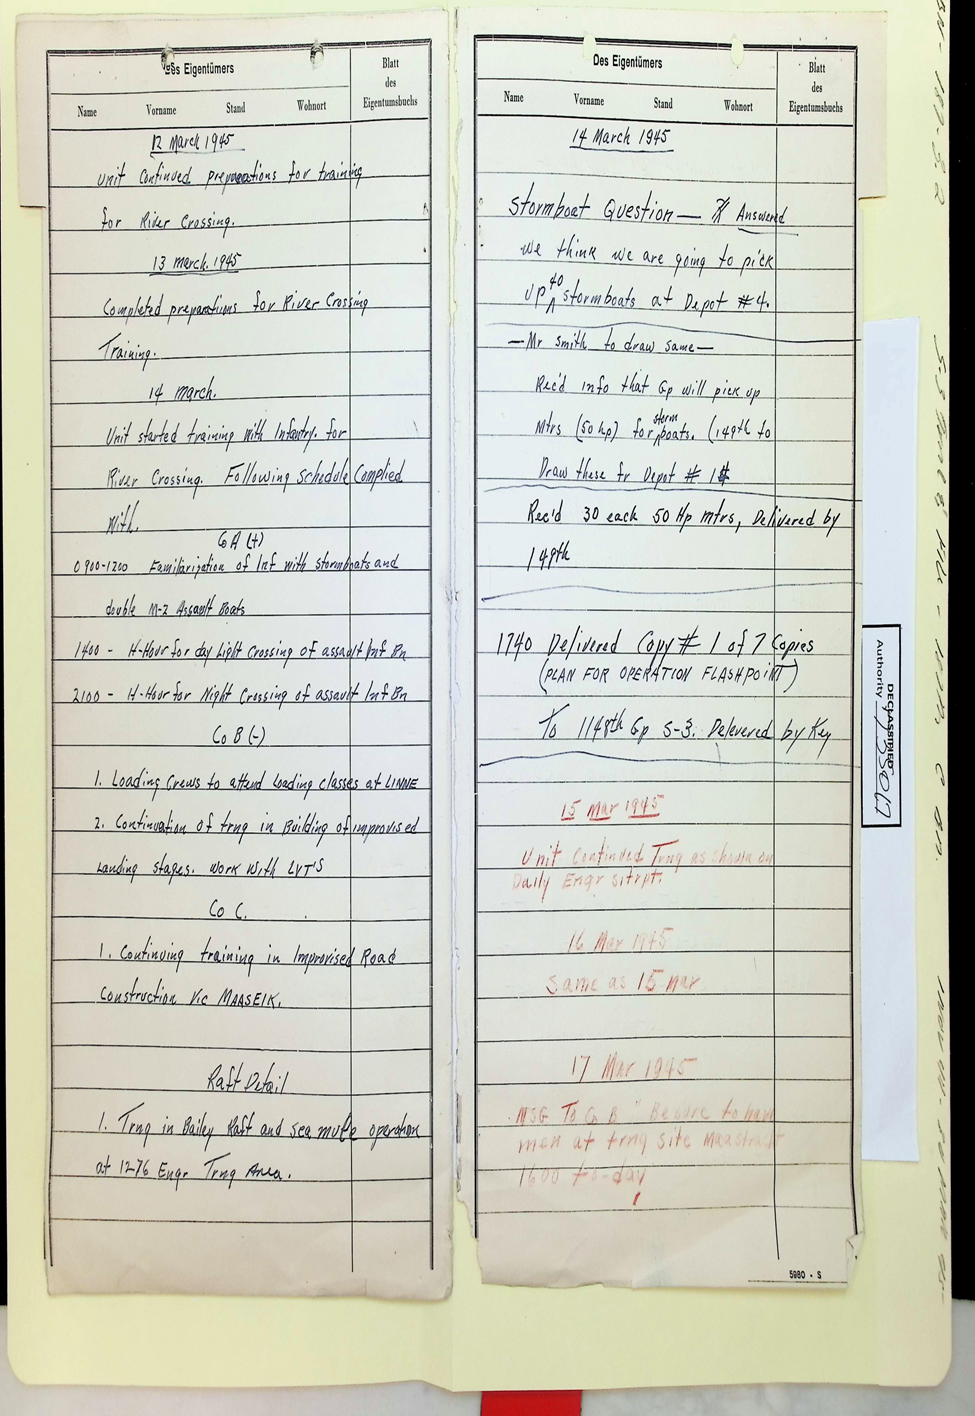 Des Eigentümers
Blatt
des
Eigentumsbuchs
Name Vorname Stand Wohnort
12 March 1945
Unit Continued preparations for training
for River Crossing.
13 March. 1945
Completed preparations for River Crossing
Training.
14 March.
Unit started training with Infantry. for
River Crossing. Following Schedule Complied
With.
Co A (+)
0900-1200 Familiarization of Inf with stormboats and
double M-2 Assault Boats
1400 - H-Hour for day Light Crossing of assault Inf Bn
2100 - H-Hour for Night Crossing of assault Inf Bn
Co B (-)
1. Loading Crews to attend Loading classes at LINNE
2. Continuation of trng in Building of improvised
Landing stages. Work With LVT'S
Co C.
1. Continuing training in Improvised Road
Construction Vic MAASEIK.
Raft Detail
1. Trng in Bailey Raft and sea mule operation
at 1276 Engr Trng Area.
Des Eigentümers
Blatt
des
Eigentumsbuchs
Name Vorname Stand Wohnort
14 March 1945
Stormboat Question — Answered
We think we are going to pick
up 40 stormboats at Depot #4.
— Mr Smith to draw same —
Rec'd info that Gp will pick up
Mtrs (50 hp) for storm boats. (149th to
Draw these fr Depot # 1
Rec'd 30 each 50 Hp mtrs, Delivered by
149th
1740 Delivered Copy # 1 of 7 Copies
(PLAN FOR OPERATION FLASHPOINT)
To 1148th Gp S-3. Delevered by Key
15 Mar 1945
Unit Continued Trng as shown on
Daily Engr sitrpt.
16 Mar 1945
Same as 15 Mar
17 Mar 1945
MSG To Co B " Be sure to have
men at trng site Maastricht
1600 to-day
5980 - S
DECLASSIFIED
Authority